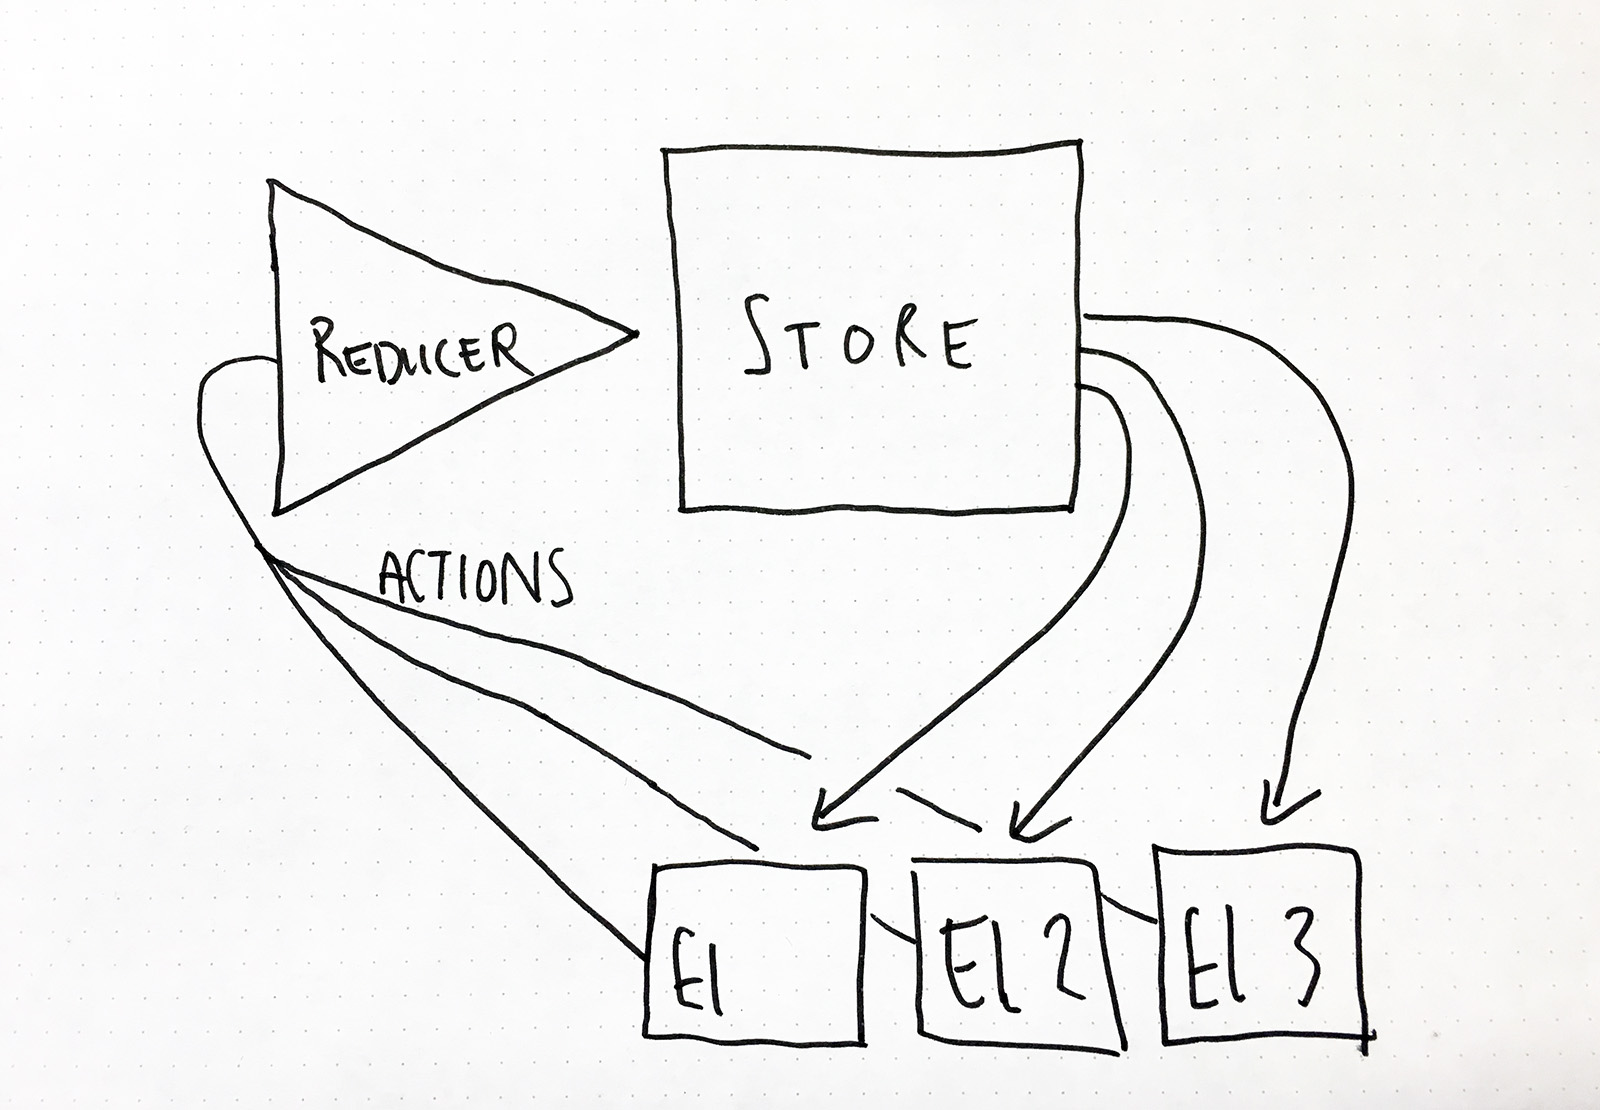 REDUCER
STORE
ACTIONS
El
El 2
El 3